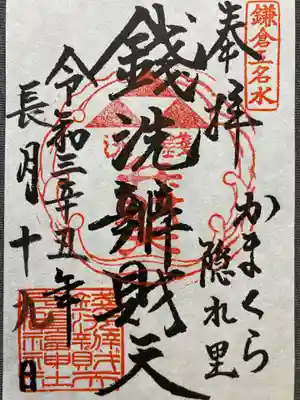 鎌倉五名水
奉拝
かまくら
隠れ里
錢洗辨財天
令和三辛丑年
長月十九日